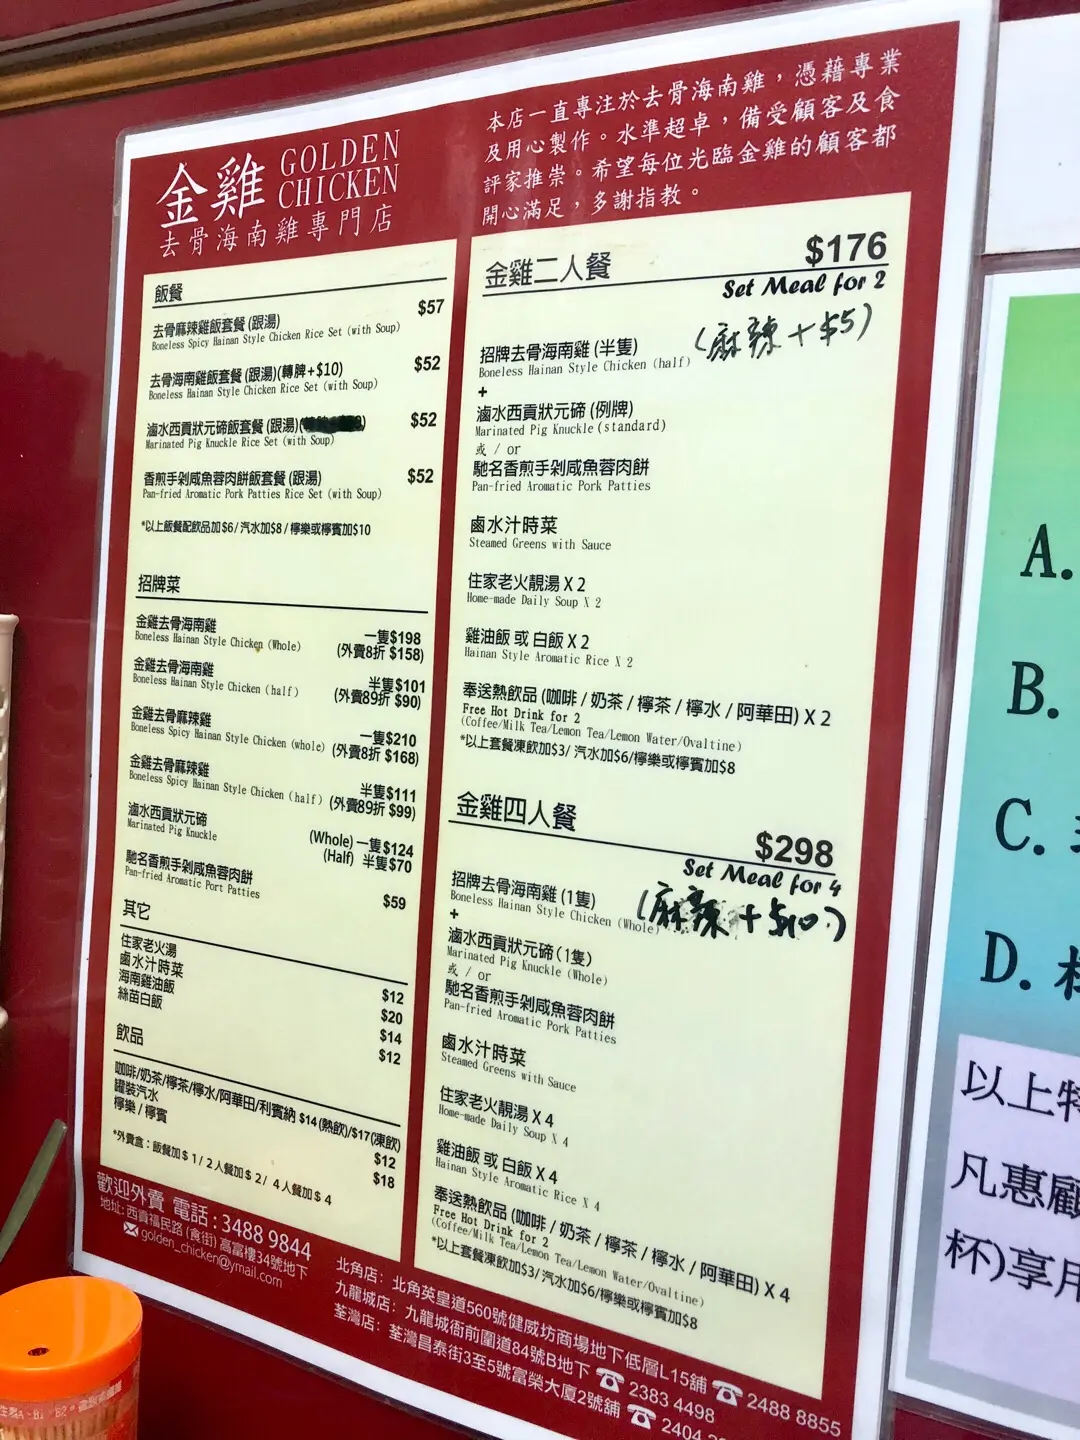 金雞 GOLDEN CHICKEN
去骨海南雞專門店
本店一直專注於去骨海南雞，憑藉專業
及用心製作。水準超卓，備受顧客及食
評家推崇。希望每位光臨金雞的顧客都
開心滿足，多謝指教。
飯餐
去骨麻辣雞飯套餐 (跟湯) $57
Boneless Spicy Hainan Style Chicken Rice Set (with Soup)
去骨海南雞飯套餐 (跟湯)(轉脾+$10) $52
Boneless Hainan Style Chicken Rice Set (with Soup)
滷水西貢狀元碲飯套餐 (跟湯) $52
Marinated Pig Knuckle Rice Set (with Soup)
香煎手剁咸魚蓉肉餅飯套餐 (跟湯) $52
Pan-fried Aromatic Pork Patties Rice Set (with Soup)
*以上飯餐配飲品加$6/ 汽水加$8 / 檸樂或檸賓加$10
招牌菜
金雞去骨海南雞 一隻$198
Boneless Hainan Style Chicken (Whole) (外賣8折 $158)
金雞去骨海南雞 半隻$101
Boneless Hainan Style Chicken (half) (外賣89折 $90)
金雞去骨麻辣雞 一隻$210
Boneless Spicy Hainan Style Chicken (whole) (外賣8折 $168)
金雞去骨麻辣雞 半隻$111
Boneless Spicy Hainan Style Chicken (half) (外賣89折 $99)
滷水西貢狀元碲 (Whole) 一隻$124
Marinated Pig Knuckle (Half) 半隻$70
馳名香煎手剁咸魚蓉肉餅
Pan-fried Aromatic Port Patties $59
其它
住家老火湯 $12
鹵水汁時菜 $20
海南雞油飯 $14
絲苗白飯 $12
飲品
咖啡/奶茶/檸茶/檸水/阿華田/利賓納 $14(熱飲)/$17(凍飲)
罐裝汽水 $12
檸樂 / 檸賓 $18
*外賣盒：飯餐加$ 1/ 2人餐加$ 2/ 4人餐加$ 4
金雞二人餐 $176
Set Meal for 2
(麻辣+$5)
招牌去骨海南雞 (半隻)
Boneless Hainan Style Chicken (half)
+
滷水西貢狀元碲 (例牌)
Marinated Pig Knuckle (standard)
或 / or
馳名香煎手剁咸魚蓉肉餅
Pan-fried Aromatic Pork Patties
鹵水汁時菜
Steamed Greens with Sauce
住家老火靚湯 X 2
Home-made Daily Soup X 2
雞油飯 或 白飯 X 2
Hainan Style Aromatic Rice X 2
奉送熱飲品 (咖啡 / 奶茶 / 檸茶 / 檸水 / 阿華田) X 2
Free Hot Drink for 2
(Coffee/Milk Tea/Lemon Tea/Lemon Water/Ovaltine)
*以上套餐凍飲加$3/ 汽水加$6/檸樂或檸賓加$8
金雞四人餐 $298
Set Meal for 4
(麻辣+$10)
招牌去骨海南雞 (1隻)
Boneless Hainan Style Chicken (Whole)
+
滷水西貢狀元碲 (1隻)
Marinated Pig Knuckle (Whole)
或 / or
馳名香煎手剁咸魚蓉肉餅
Pan-fried Aromatic Pork Patties
鹵水汁時菜
Steamed Greens with Sauce
住家老火靚湯 X 4
Home-made Daily Soup X 4
雞油飯 或 白飯 X 4
Hainan Style Aromatic Rice X 4
奉送熱飲品 (咖啡 / 奶茶 / 檸茶 / 檸水 / 阿華田) X 4
Free Hot Drink for 2
(Coffee/Milk Tea/Lemon Tea/Lemon Water/Ovaltine)
*以上套餐凍飲加$3/ 汽水加$6/檸樂或檸賓加$8
歡迎外賣 電話：3488 9844
地址: 西貢福民路 (食街) 高富樓34號地下
golden_chicken@ymail.com
北角店：北角英皇道560號健威坊商場地下低層L15舖 ☎ 2488 8855
九龍城店：九龍城衙前圍道84號B地下 ☎ 2383 4498
荃灣店：荃灣昌泰街3至5號富榮大廈2號舖 ☎ 2404
A.
B.
C.
D.
以上特
凡惠顧
杯)享用